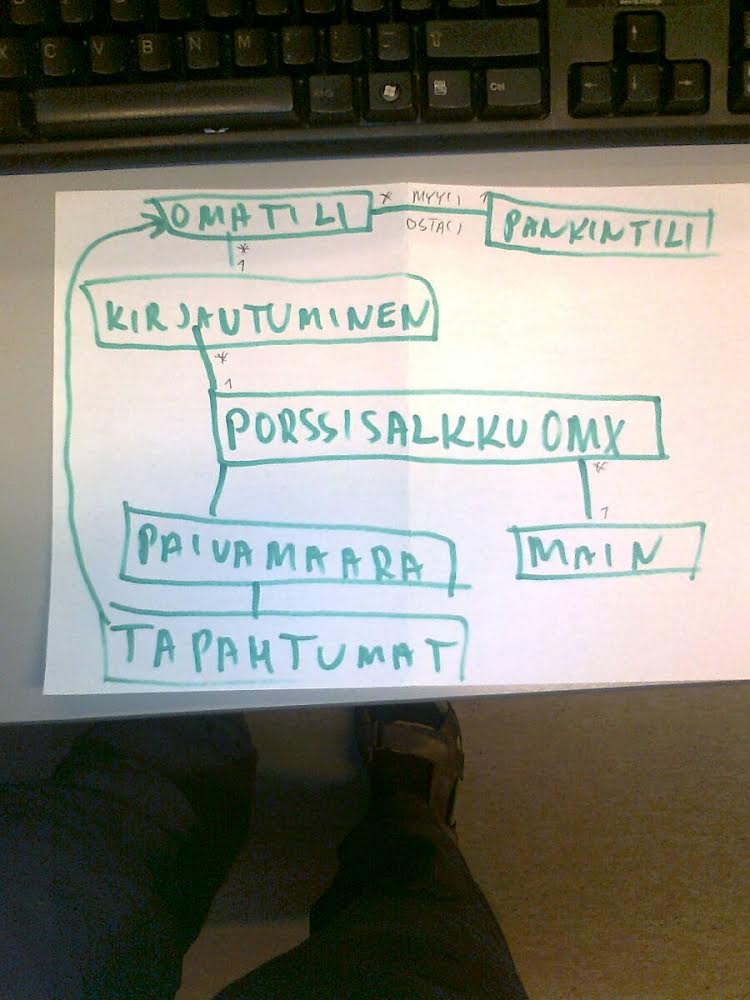 X C V B N M
Alt Gr
Ctrl
OMATILI
* MYYCI 1
OSTACI
PANKINTILI
*
1
KIRJAUTUMINEN
*
1
PORSSISALKKU OMX
*
1
PAIVAMAARA
MAIN
TAPAHTUMAT